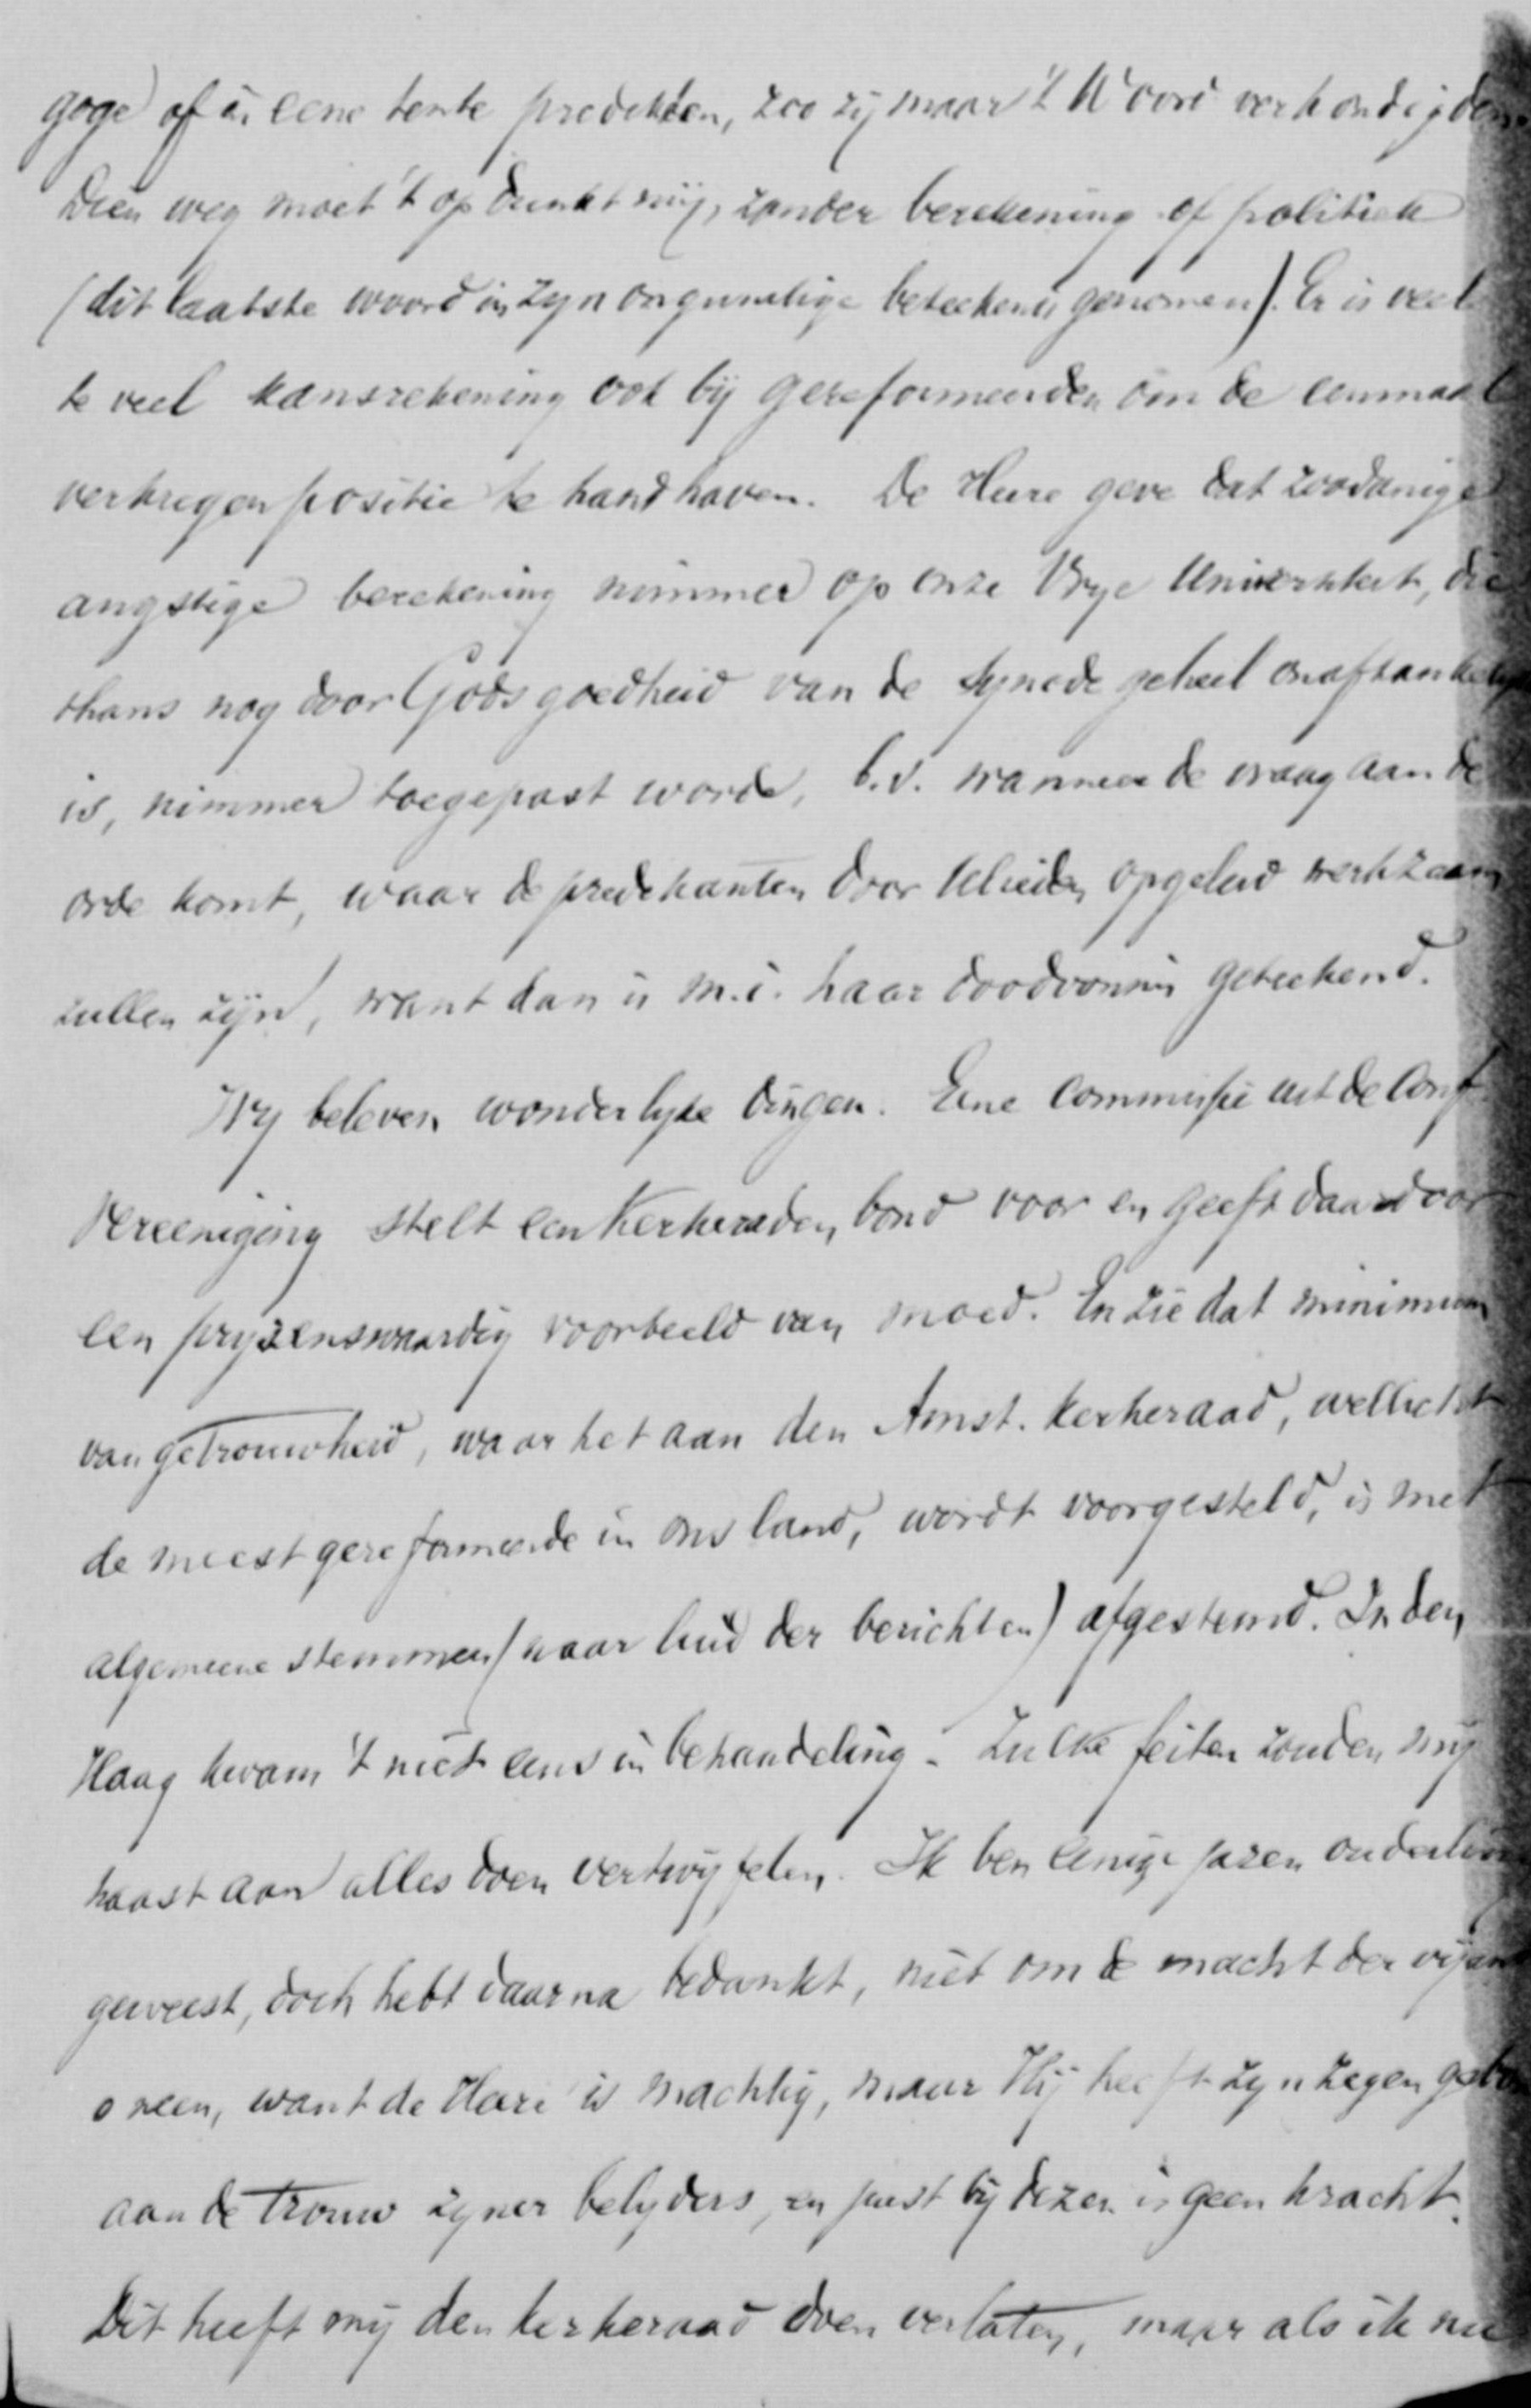 goge) of in eene tente predikten, zoo zij maar 't Woord verkondigden.
Dien weg moet 't op dunkt mij, zonder berekening of politiek
(dit laatste woord in zijn ongunstige beteekenis genomen). Er is veel
te veel kansrekening ook bij gereformeerden om de eenmaal
verkregen positie te handhaven. De Heere geve dat zoodanige
angstige berekening nimmer op onze Vrije Universiteit, die
thans nog door Gods goedheid van de Synode geheel onafhankelijk
is, nimmer toegepast worde, b.v. wanneer de vraag aan de
orde komt, waar de predikanten door opgeleid werkzaam
zullen zijn, want dan is m.i. haar doodvonnis geteekend.
Wij beleven wonderlijke dingen. Eene Commissie uit de Conf.
Vereeniging stelt een Kerkeraden bond voor en geeft daardoor
een prijzenswaardig voorbeeld van moed. En zie dat minimum
van getrouwheid, waar het aan den Amst. kerkeraad, wellicht
de meest gereformeerde in ons land, wordt voorgesteld, is met
algemeene stemmen (naar luid der berichten) afgestemd. In den
Haag kwam 't niet eens in behandeling. Zulke feiten zouden mij
haast aan alles doen vertwijfelen. Ik ben eenige jaren ouderling
geweest, doch hebt daarna bedankt, niet om de macht der vijand
o neen, want de Heere is machtig, maar Hij heeft zijn zegen
aan de trouw zijner belijders, en juist bij dezen is geen kracht.
Dit heeft mij den kerkeraad doen verlaten, maar als ik nu